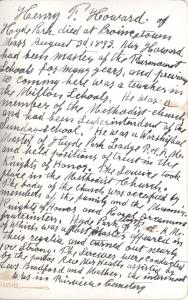 Henry T. Howard. of
Hyde Park died at Provincetown
Mass August 3d 1893. Mr. Howard
had been master of the Fairmount
Schools for many years, and previous
to coming here was a teacher in
the Milton Schools. He was a
member of the Methodist church
and had been Superintendent of the
Sunday school. He was a Worshipful
Master of Hyde Park Lodge F. & A. M.
and held positions of trust in the
Knights of Honor. The Service took
place in the Methodist Church.
The body of the church was occupied by
members of the family and the Masonic
Knights of Honor and Kings
fraternities. Hyde Park F. & A. M.
of which was a Past Master, appeared in
their regalia, and turned out nearly
The Services were conducted
by the pastor Rev. Mr. assisted by
Revs Bradford and Methen, the interment
was in Riverview Cemetery